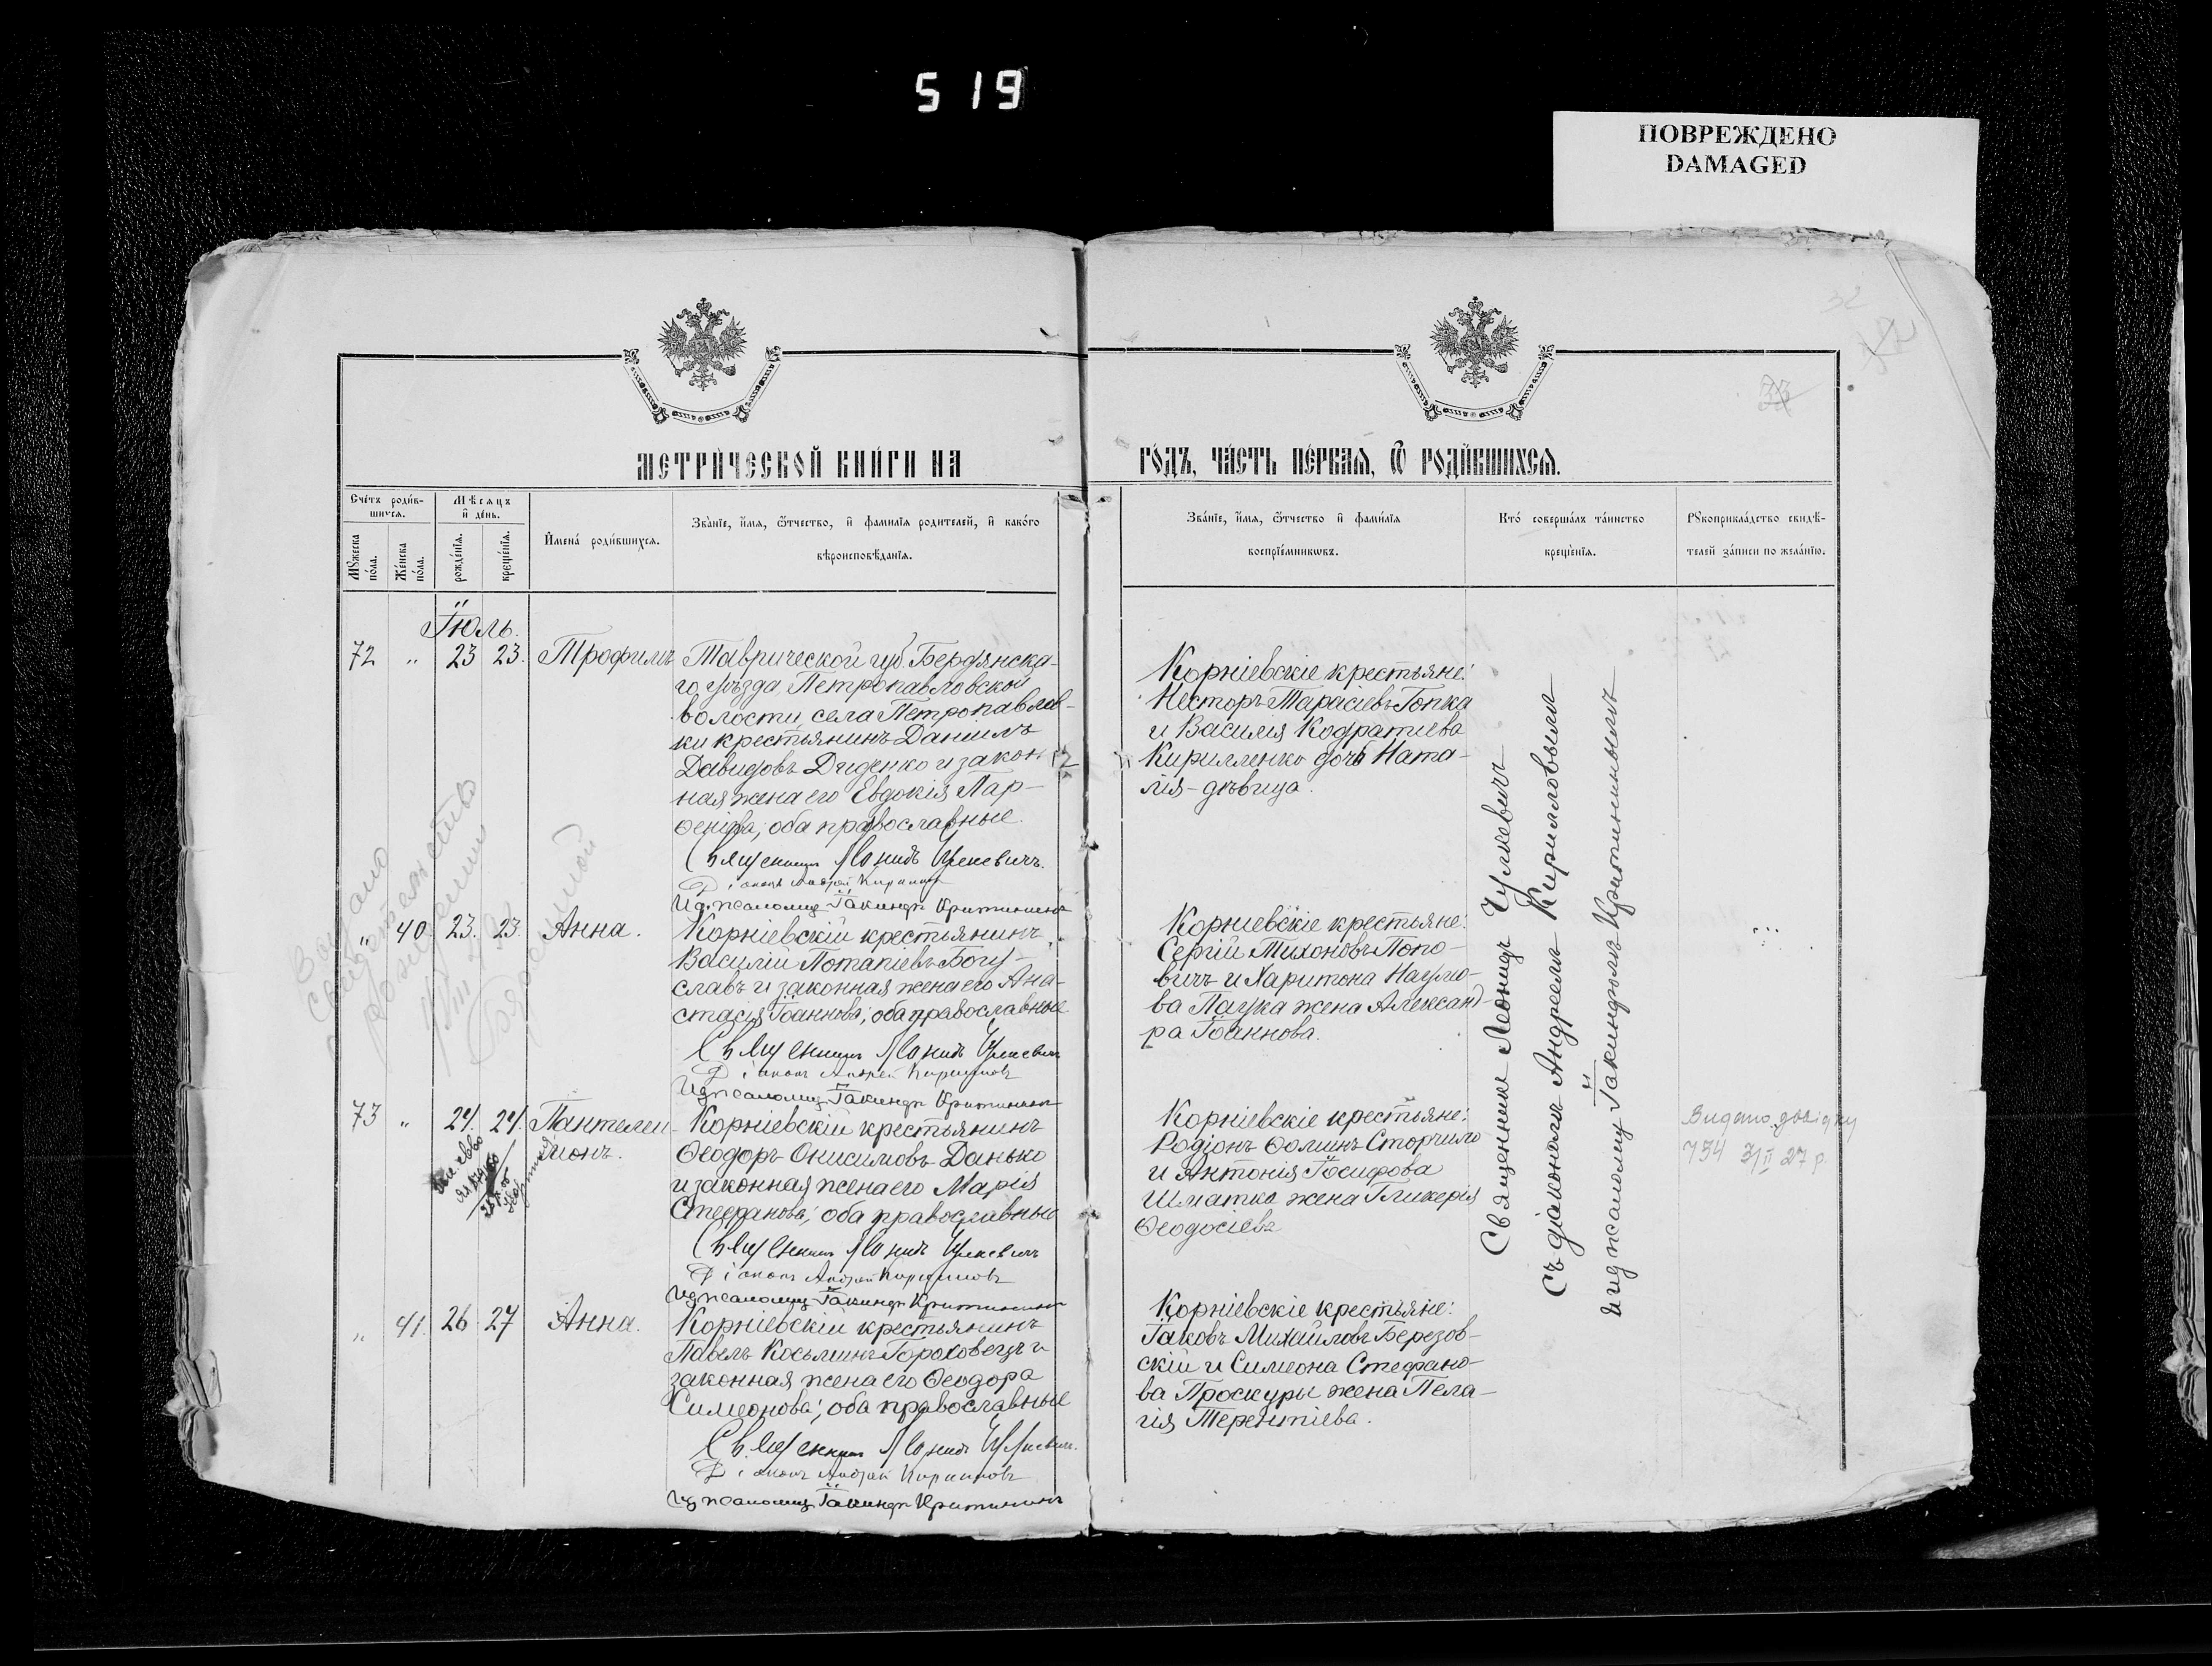 519
ПОВРЕЖДЕНО
DAMAGED
32
МЕТРИ́ЧЕСКОЙ КНИ́ГИ НА
ГО́ДЪ, ЧА́СТЬ ПЕ́РВАЯ, Ѿ РОДИ́ВШИХСЯ.
Сче́тъ роди́в-
шихся.
Мужеска по́ла.
Же́нска по́ла.
Мѣсяцъ
и де́нь.
рожде́нїя.
креще́нїя.
Имена́ роди́вшихся.
Зва́нїе, и́мя, ѻ́тчество, и фами́лїя родителей, и како́го
вѣроисповѣ́данїя.
Зва́нїе, и́мя, ѻ́тчество и фами́лїя
воспрїе́мниковъ.
Кто́ соверша́лъ та́инство
креще́нїя.
Рукоприкла́дство свидѣ́-
телей за́писи по жела́нїю.
Іюль.
72 " 23 23. Трофимъ
Таврической губ. Бердянска-
го уѣзда, Петропавловской
волости, села Петропавлов-
ки крестьянинъ Даніилъ
Давидовъ Диденко и закон-
ная жена его Евдокія Пар-
ѳеніева, оба православные.
Священникъ Леонидъ Чулкевичъ.
Діаконъ Андрей Кирилловъ
И.д. псаломщ. Іакинфъ Критининъ
Корніевскіе крестьяне:
Несторъ Тарасіевъ Гопка
и Василія Кодратиева
Кириленко дочь Ната-
лія - дѣвица.
" 40 23. 23. Анна.
Корніевскій крестьянинъ
Василій Потапіевъ Богу-
славъ и законная жена его Ана-
стасія Іоаннова; оба православные
Священникъ Леонидъ Чулкевичъ
Діаконъ Андрей Кирилловъ
И.д. псаломщ. Іакинфъ Критининъ
Корніевскіе крестьяне:
Сергій Тихоновъ Попо-
вичъ и Харитона Наумо-
ва Паука жена Александ-
ра Іоаннова.
73 " 24. 24. Пантелеи-
монъ.
Корніевскій крестьянинъ
Ѳеодоръ Онисимовъ Данько
и законная жена его Марія
Стефанова; оба православные
Священникъ Леонидъ Чулкевичъ
Діаконъ Андрей Кирилловъ
И.д. псаломщ. Іакинфъ Критининъ
Корніевскіе крестьяне:
Родіонъ Ѳоминъ Сторчило
и Антонія Іосифова
Шматка жена Гликерія
Ѳеодосіева
Видано довідку
734 3/II 27 р.
" 41. 26 27 Анна.
Корніевскій крестьянинъ
Павелъ Косьминъ Гороховецъ и
законная жена его Ѳеодора
Симеонова; оба православные
Священникъ Леонидъ Чулкевичъ.
Діаконъ Андрей Кирилловъ
И.д. псаломщ. Іакинфъ Критининъ
Корніевскіе крестьяне:
Іаковъ Михайловъ Березов-
скій и Симеона Стефано-
ва Проскуры жена Пела-
гія Терентіева.
Священникъ Леонидъ Чулкевичъ
Съ діакономъ Андреемъ Кирилловымъ
и и.д. псаломщ. Іакинфомъ Критининымъ